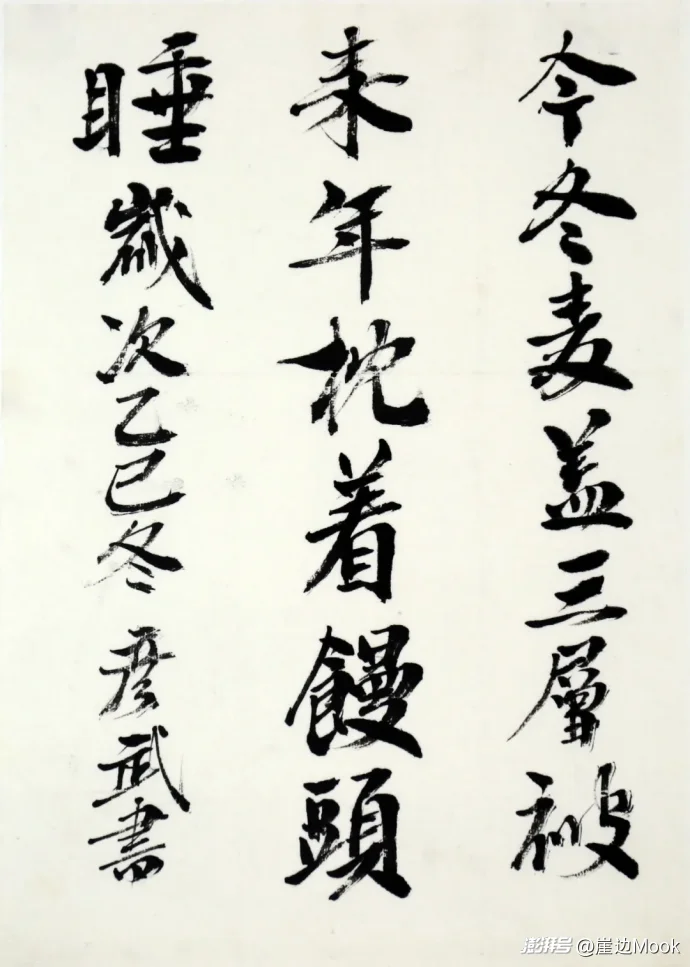 今冬麦盖三層被
来年枕着饅頭
睡歲次乙巳冬彦武書
澎湃号 @崖边Mook